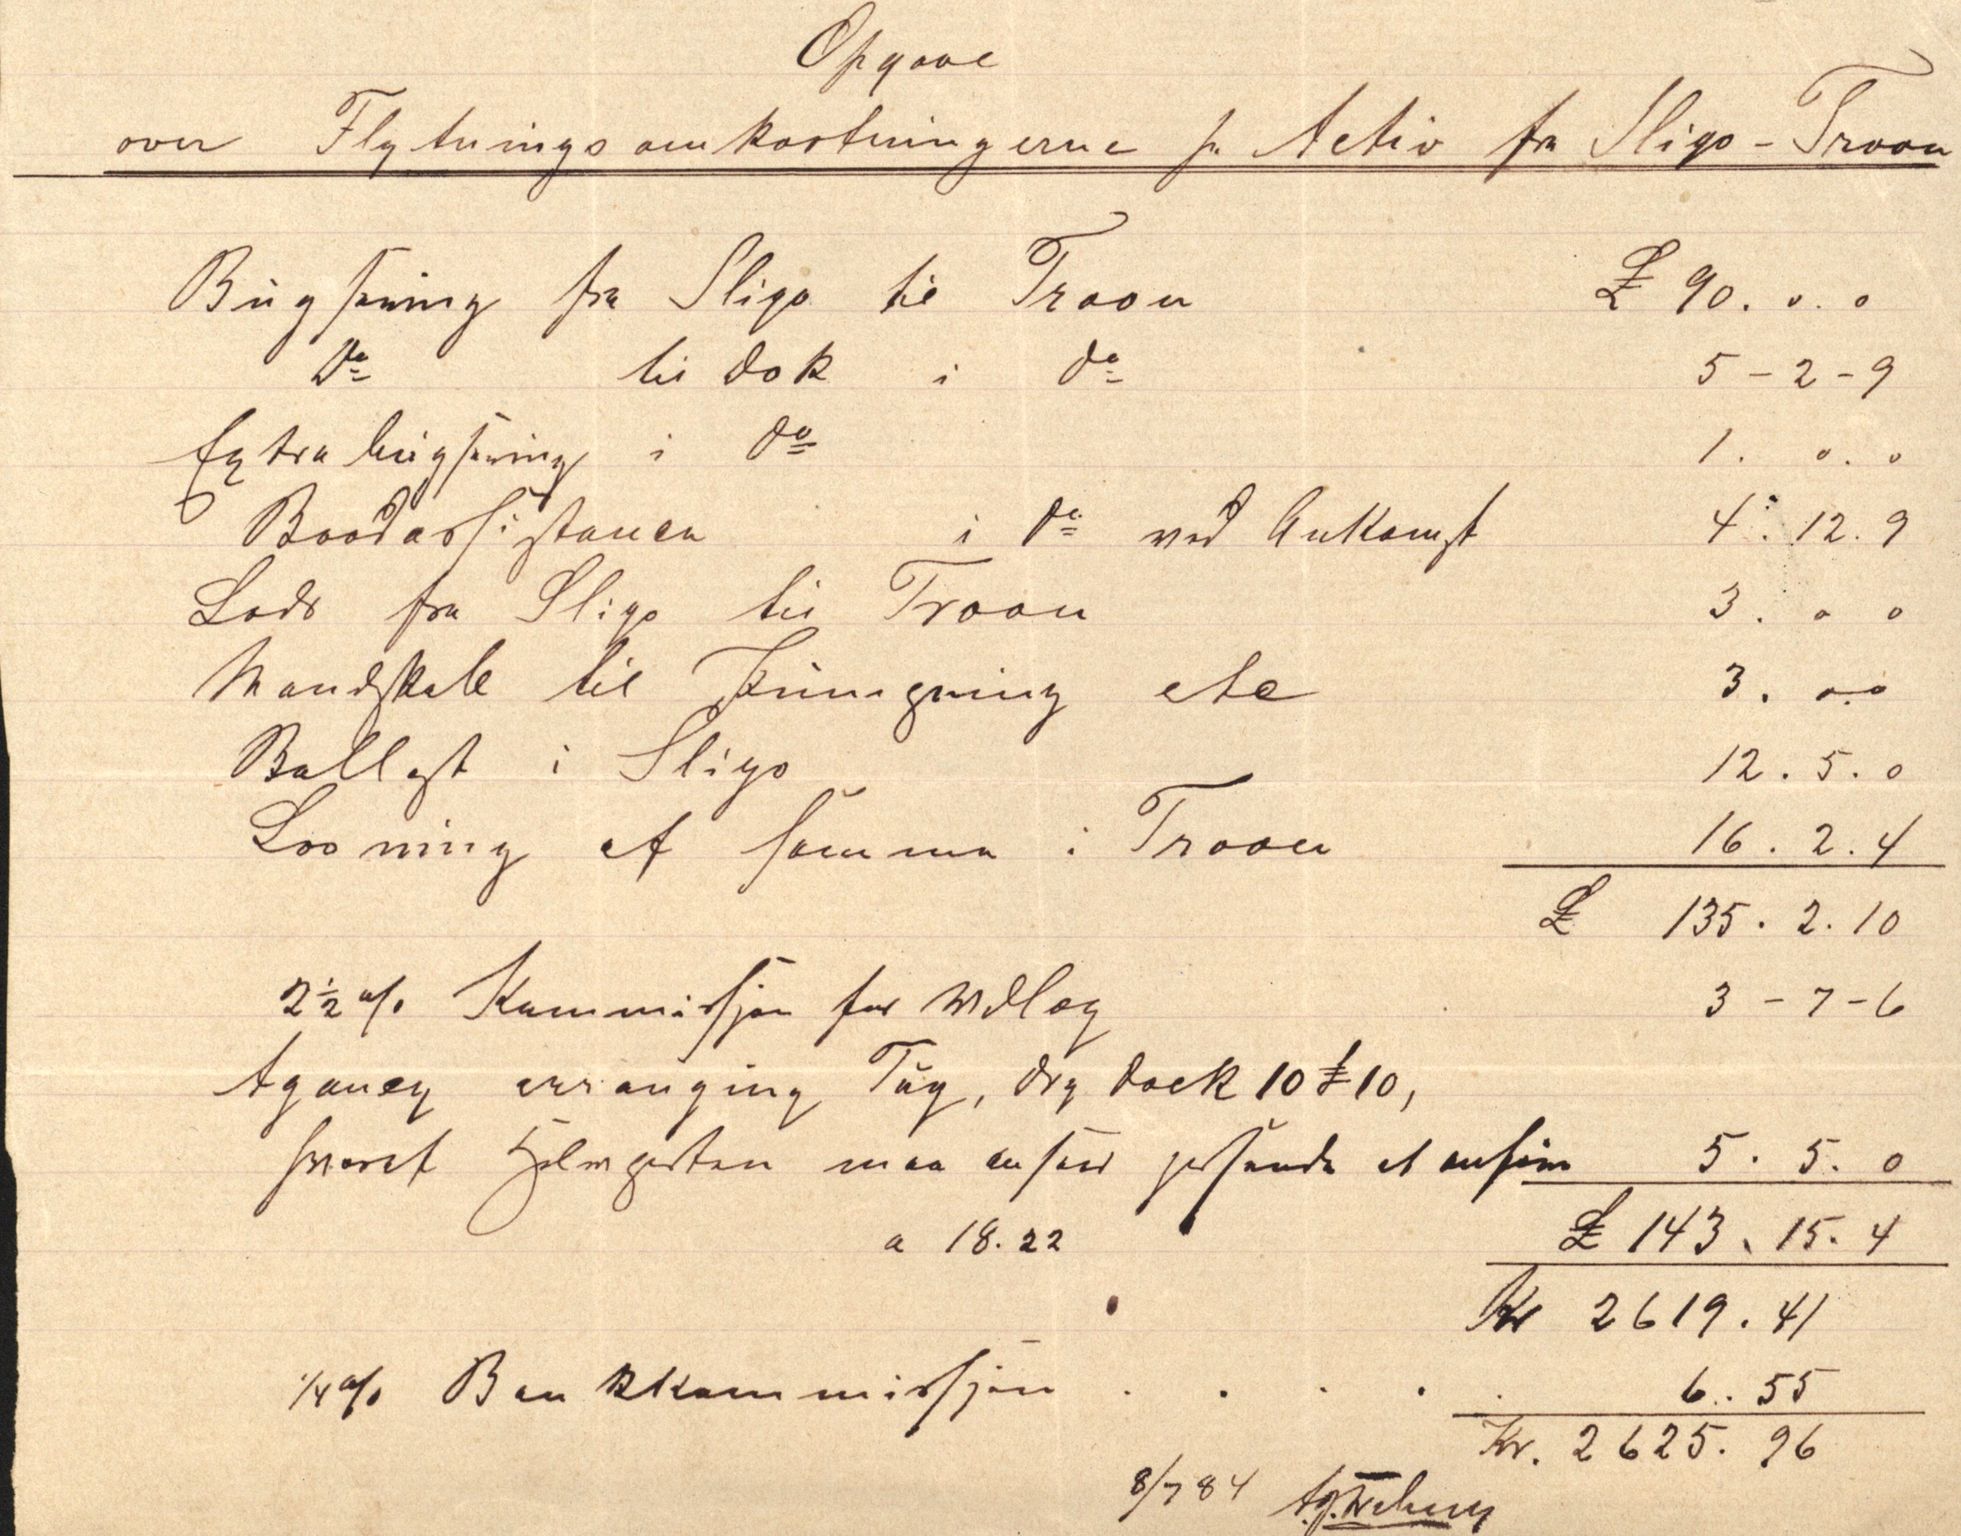 Opgave
over Flytningsomkostningerne pr Activ fra Sligo - Troon
Bugsering fra Sligo til Troon £ 90. 0. 0
Do til Dok i do 5 - 2 - 9
Extra bugsering i do 1. 0. 0
Baadassistance i do ved Ankomst 4. 12. 9
Lods fra Sligo til Troon 3. 0 0
Mandskab til etc 3. 0.0
Ballast i Sligo 12. 5. 0
Losning af samme i Troon 16. 2. 4
£ 135. 2. 10
2½ % Kommissjon for Udlæg 3 - 7 - 6
Agency arranging Tug, dry dock 10 £ 10,
hvoraf Halvparten maa ansees 5. 5. 0
a 18.22 £ 143. 15. 4
Kr 2619. 41
1/4 % Bankkommissjon . . . . . 6. 55
Kr. 2625. 96
8/7 84